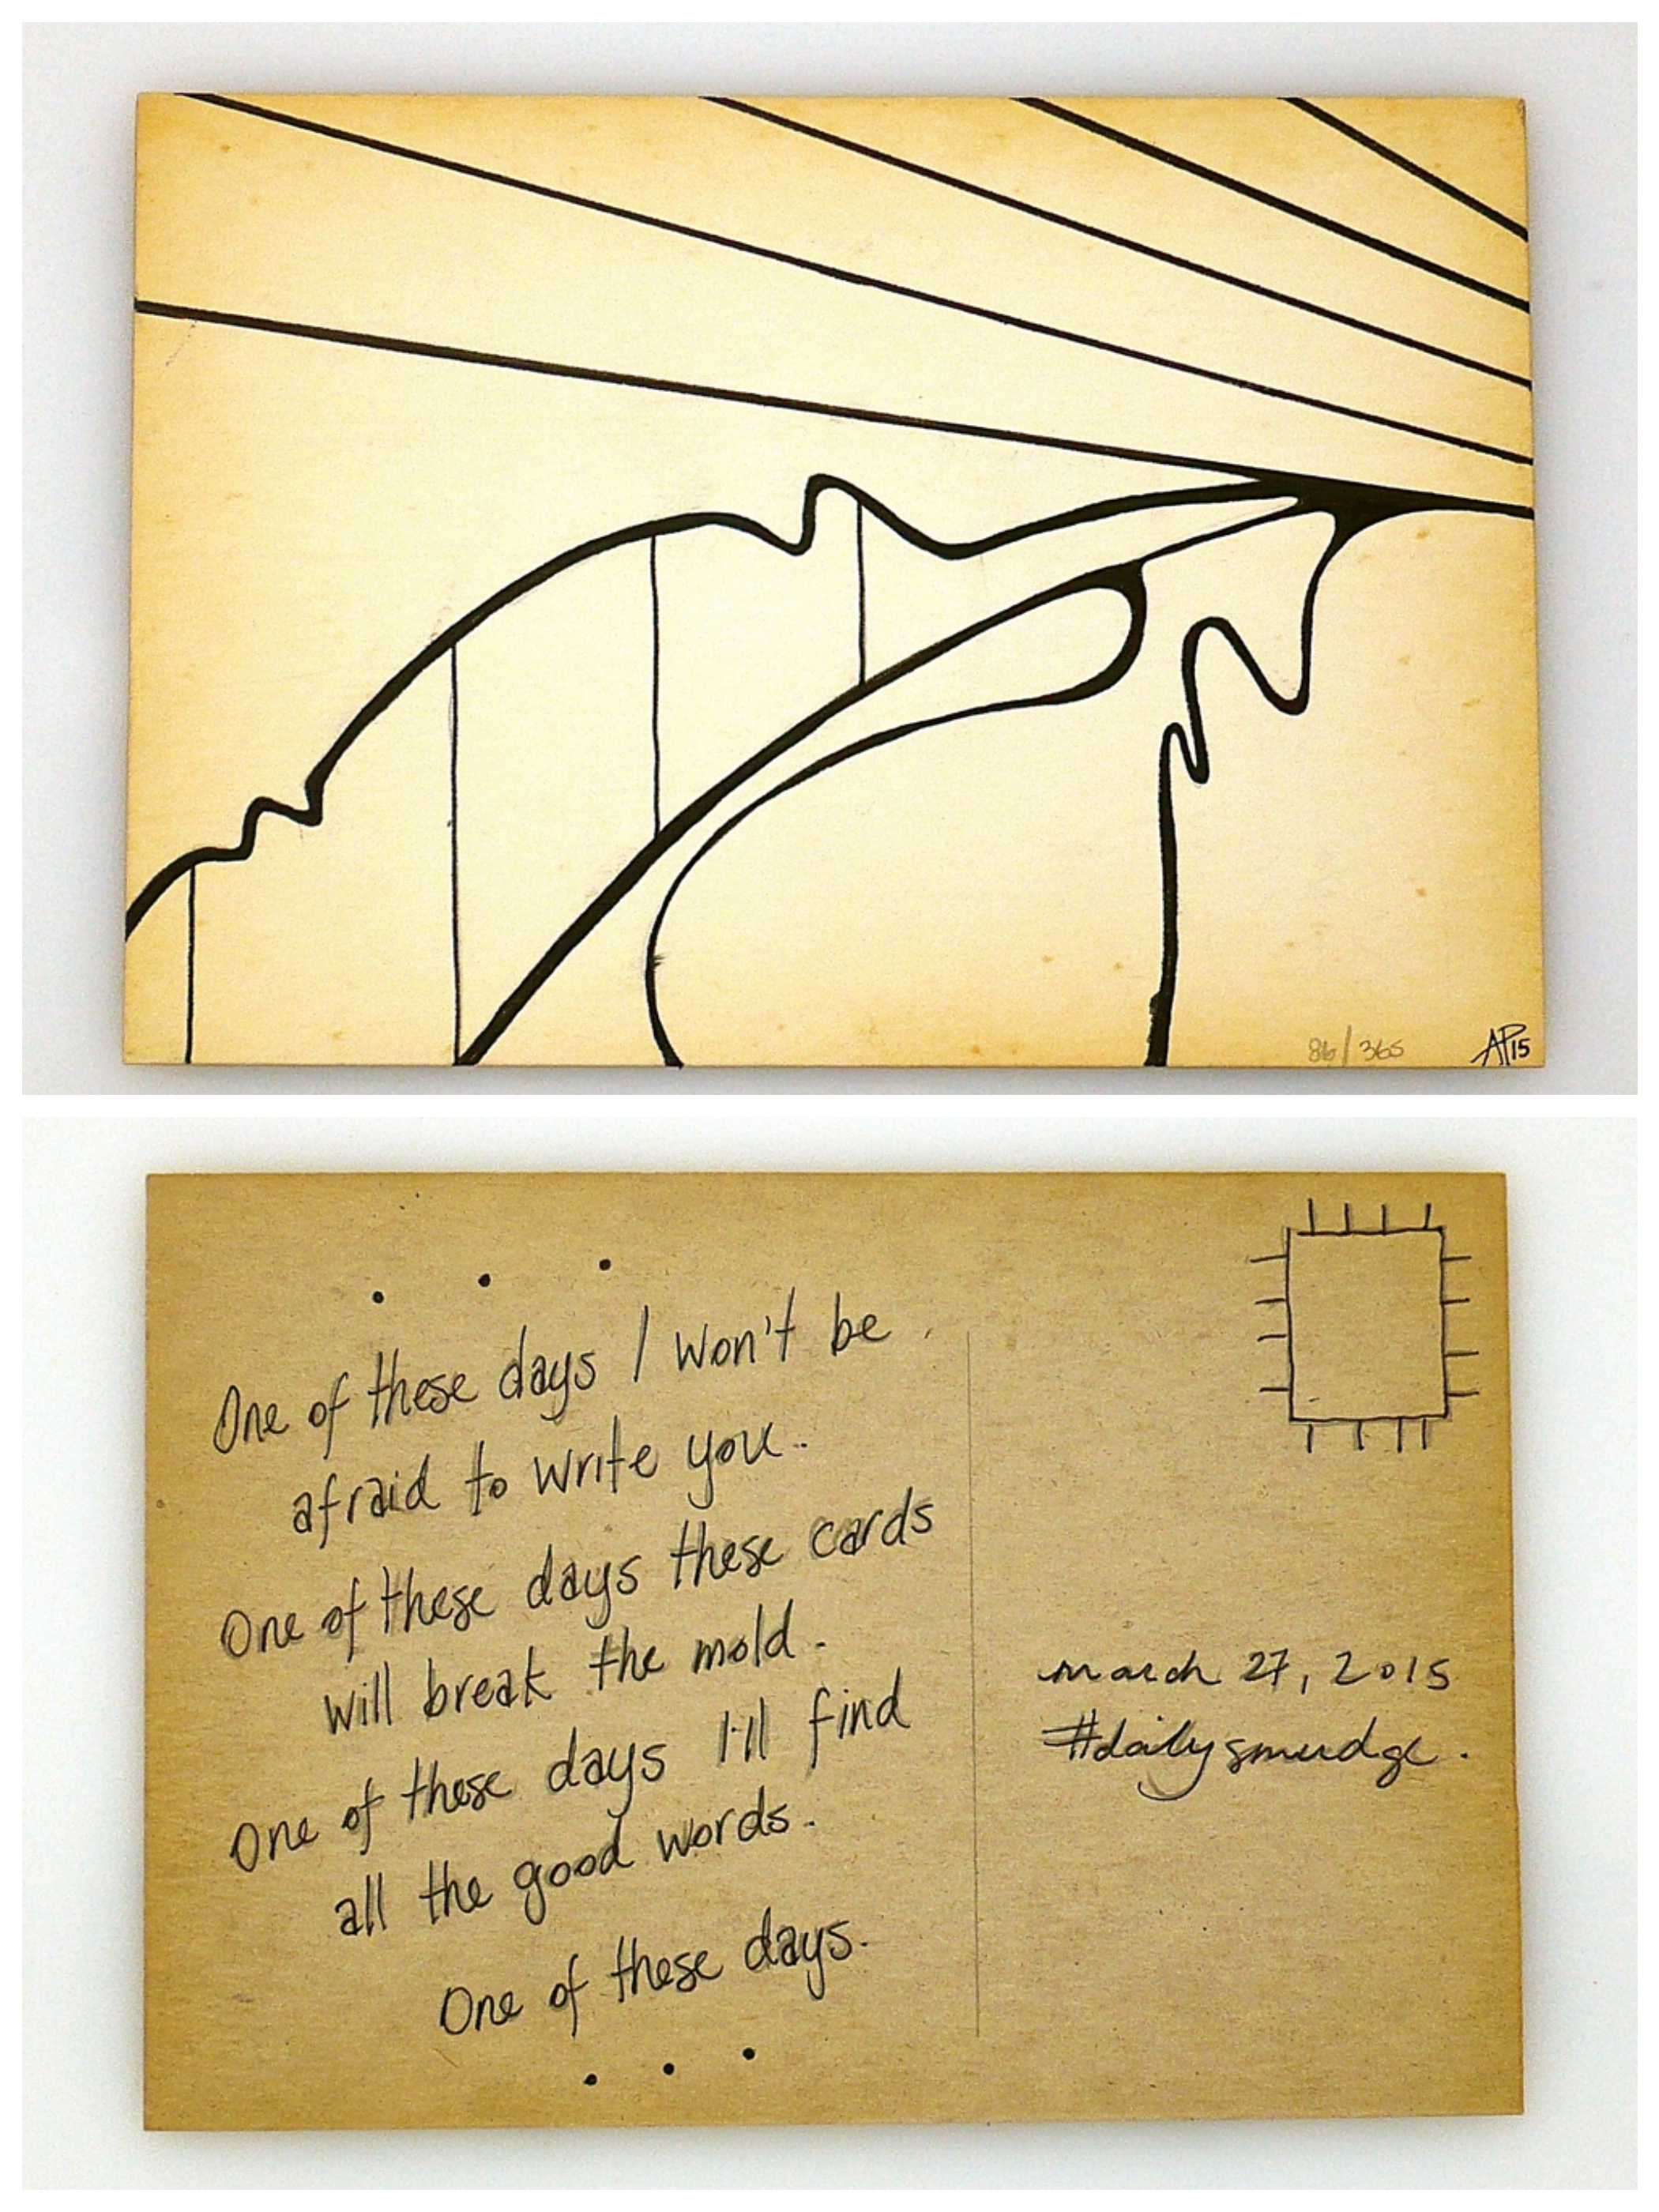 86/365
AP15
One of these days I won't be
afraid to write you.
One of these days these cards
will break the mold.
One of these days I'll find
all the good words.
One of these days.
march 27, 2015
#dailysmudge.